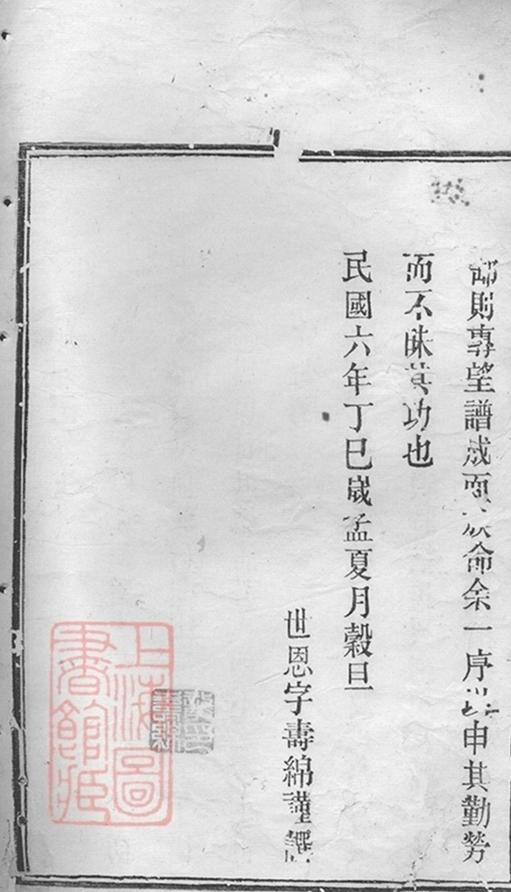 則專望譜成而命余一序申其勤勞
而不昧其功也
民國六年丁巳歲孟夏月穀旦
世恩字壽綿謹譔
上海圖書館藏